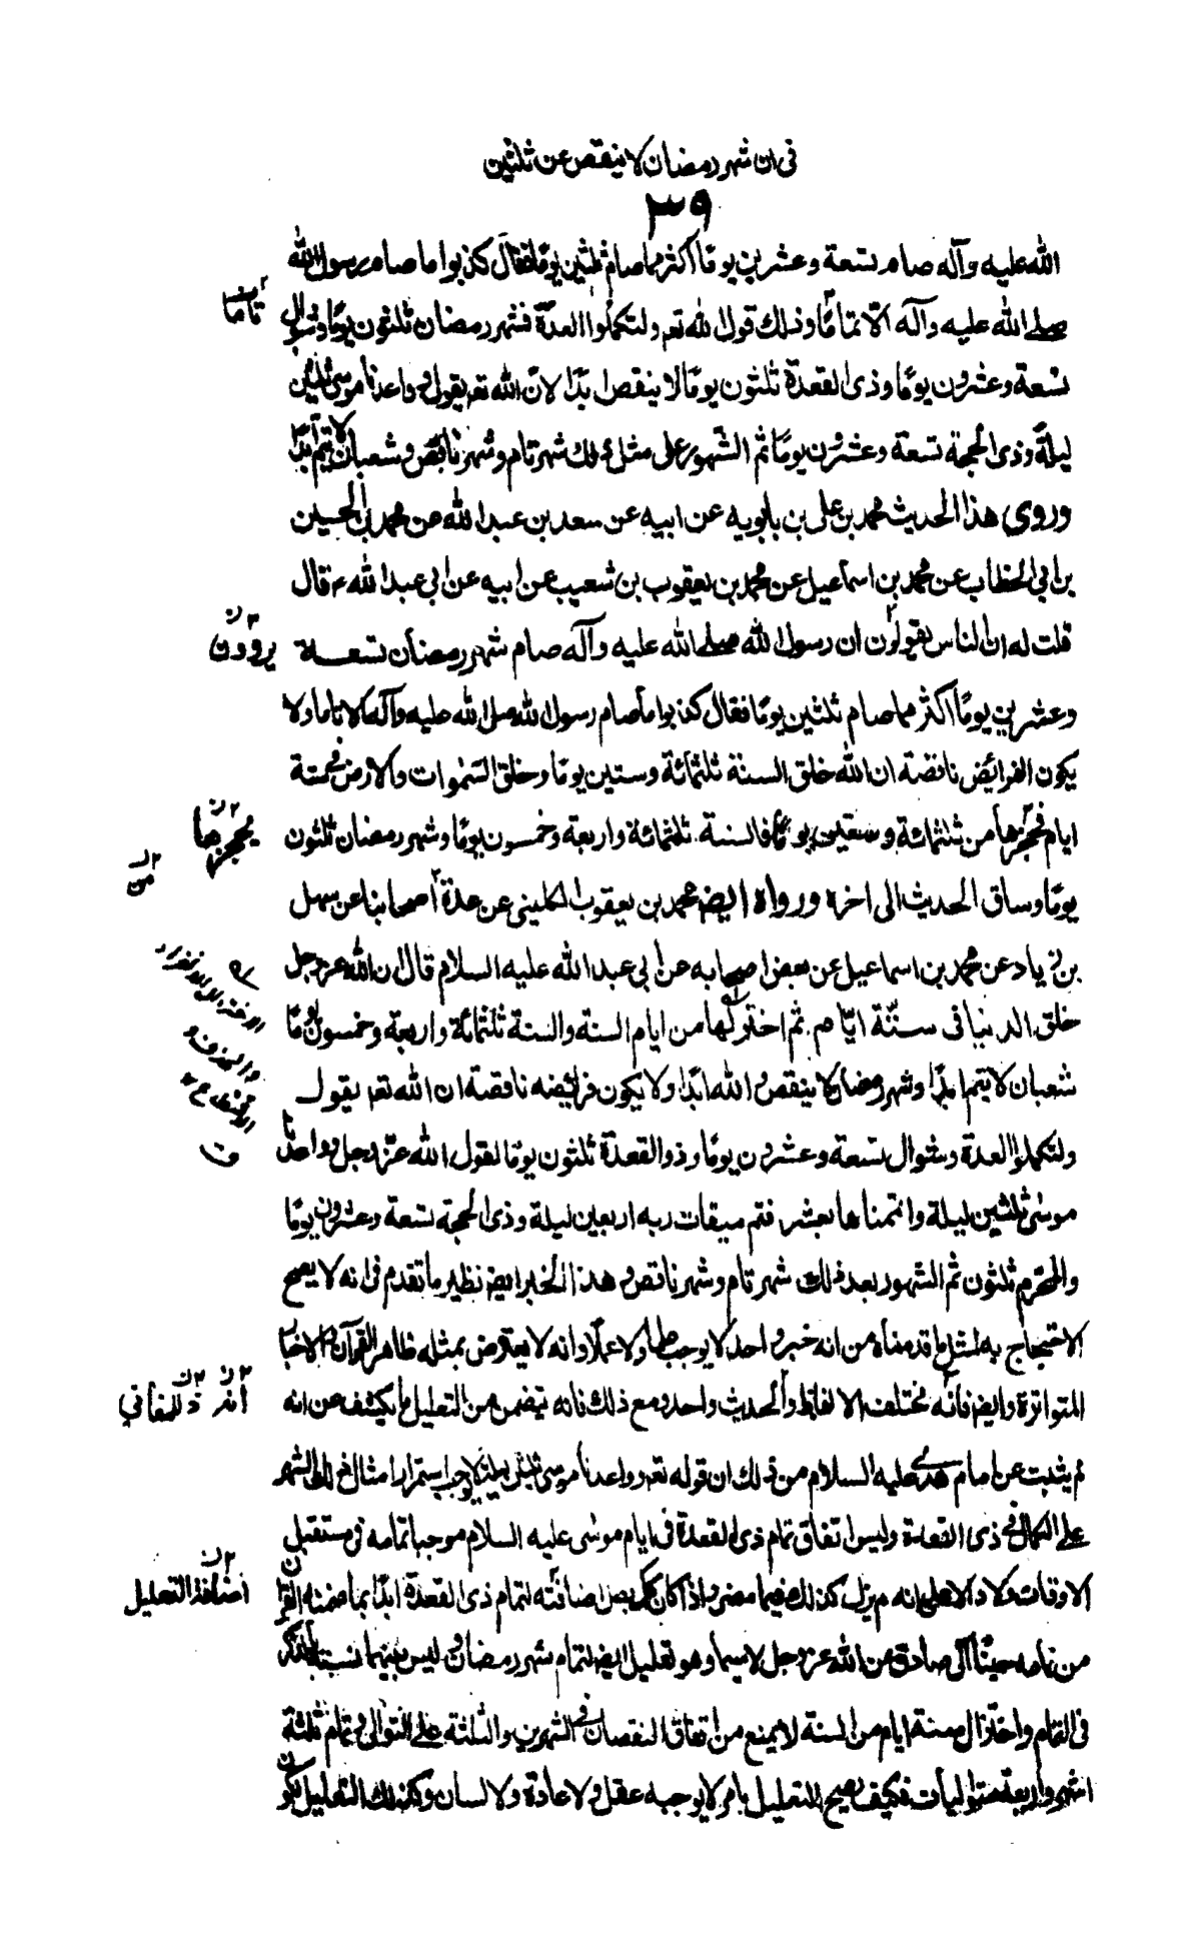 فى ان شهر رمضان لا ينقص عن ثلثين
٣٩
الله عليه وآله صام تسعة وعشرين يومًا اكثر مما صام ثلثين يومًا فقال كذبوا ما صام رسول الله
صلى الله عليه وآله الّا تمامًا وذلك قول الله تعه ولتكملوا العدّة فشهر رمضان ثلثون يومًا وشوال
تامّا
تسعة وعشرون يومًا وذى القعدة ثلثون يومًا لا ينقص ابدًا لانّ الله تعه يقول وواعدنا موسى ثلثين
ليلةً وذى الحجة تسعة وعشرون يومًا ثم الشّهور على مثل ذلك شهر تام وشهر ناقص وشعبان لا يتم ابدًا
وروى هذا الحديث محمد بن على بن بابويه عن ابيه عن سعد بن عبد الله عن محمد بن الحسين
بن ابى الخطاب عن محمد بن اسماعيل عن محمد بن يعقوب بن شعيب عن ابيه عن ابى عبد الله ع قال
قلت له ان الناس يقولون ان رسول الله صلى الله عليه وآله صام شهر رمضان تسعة
يروون
وعشرين يومًا اكثر مما صام ثلثين يومًا فقال كذبوا ما صام رسول الله صلى الله عليه وآله الا تاما ولا
يكون الفرائض ناقصة ان الله خلق السنة ثلثمائة وستين يومًا وخلق السّموات والارض فى ستة
ايام فحجزها من ثلثمائة وستين يومًا فالسنة ثلثمائة واربعة وخمسون يومًا وشهر رمضان ثلثون
يحجزها
من
يومًا وساق الحديث الى اخره ورواه ايضه محمد بن يعقوب الكلينى عن عدة اصحابنا عن سهل
بن زياد عن محمد بن اسماعيل عن بعض اصحابه عن ابى عبد الله عليه السلام قال ان الله عز وجل
خلق الدنيا فى ستّة ايّام ثم اختزلها من ايام السنة والسنة ثلثمائة واربعة وخمسون يومًا
شعبان لا يتم ابدًا وشهر رمضان لا ينقص والله ابدًا ولا يكون فريضه ناقصة ان الله تعه يقول
ولتكملوا العدة وشوال تسعة وعشرون يومًا وذو القعدة ثلثون يومًا لقول الله عزّ وجل وواعدنا
موسى ثلثين ليلة واتممناها بعشر فتم ميقات ربه اربعين ليلة وذى الحجة تسعة وعشرون يومًا
والمحرّم ثلثون ثم الشهور بعد ذلك شهر تام وشهر ناقص وهذا الخبر ايضه نظير ما تقدم فى انه لا يصح
الاحتجاج به لمثل ما قدمناه من انه خبر واحد لا يوجب علما ولا عملًا وانه لا يعترض بمثله ظاهر القرآن والاخبار
المتواترة وايضه فانّه مختلف الالفاظ والحديث واحد ومع ذلك فانه يتضمن من التعليل ما يكشف عن انه
للمعانى
لم يثبت عن امام هدى عليه السلام من ذلك ان قوله تعه وواعدنا موسى ثلثين ليلة لا يوجب استمرار امثال ذلك الشهر
على الكمال فى ذى القعدة وليس اتفاق تمام ذى القعدة فى ايام موسى عليه السلام موجبا تمامه فى مستقبل
الاوقات ولا دالا على انه لم يزل كذلك فيما مضى واذا كان لم يصح اضافته لتمام ذى القعدة ابدًا بما تضمنه القرآن
اضافة التعليل
من تمامه حينًا الى صادق عن الله عز وجل لا سيما وهو تعليل ايضه لتمام شهر رمضان وليس بينهما نسبة بالذكر
فى التمام واختزال ستة ايام من السنة لا يمنع من اتفاق النقصان فى الشهرين والثلثة على التوالى وتمام ثلثة
اشهر واربعة متواليات فكيف يصح التعليل بامر لا يوجبه عقل ولا عادة ولا لسان وكذلك التعليل لكون